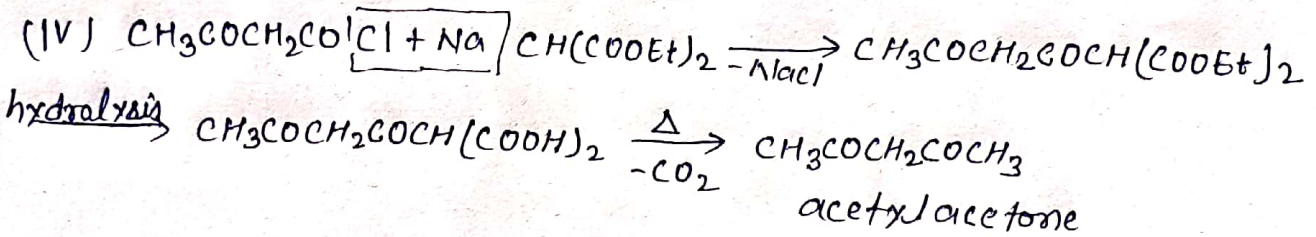 (IV) CH₃COCH₂CO Cl + Na CH(COOEt)₂ —-Nacl→ CH₃COCH₂COCH(COOEt)₂
hydrolysis→ CH₃COCH₂COCH(COOH)₂ —Δ -CO₂→ CH₃COCH₂COCH₃
acetylacetone